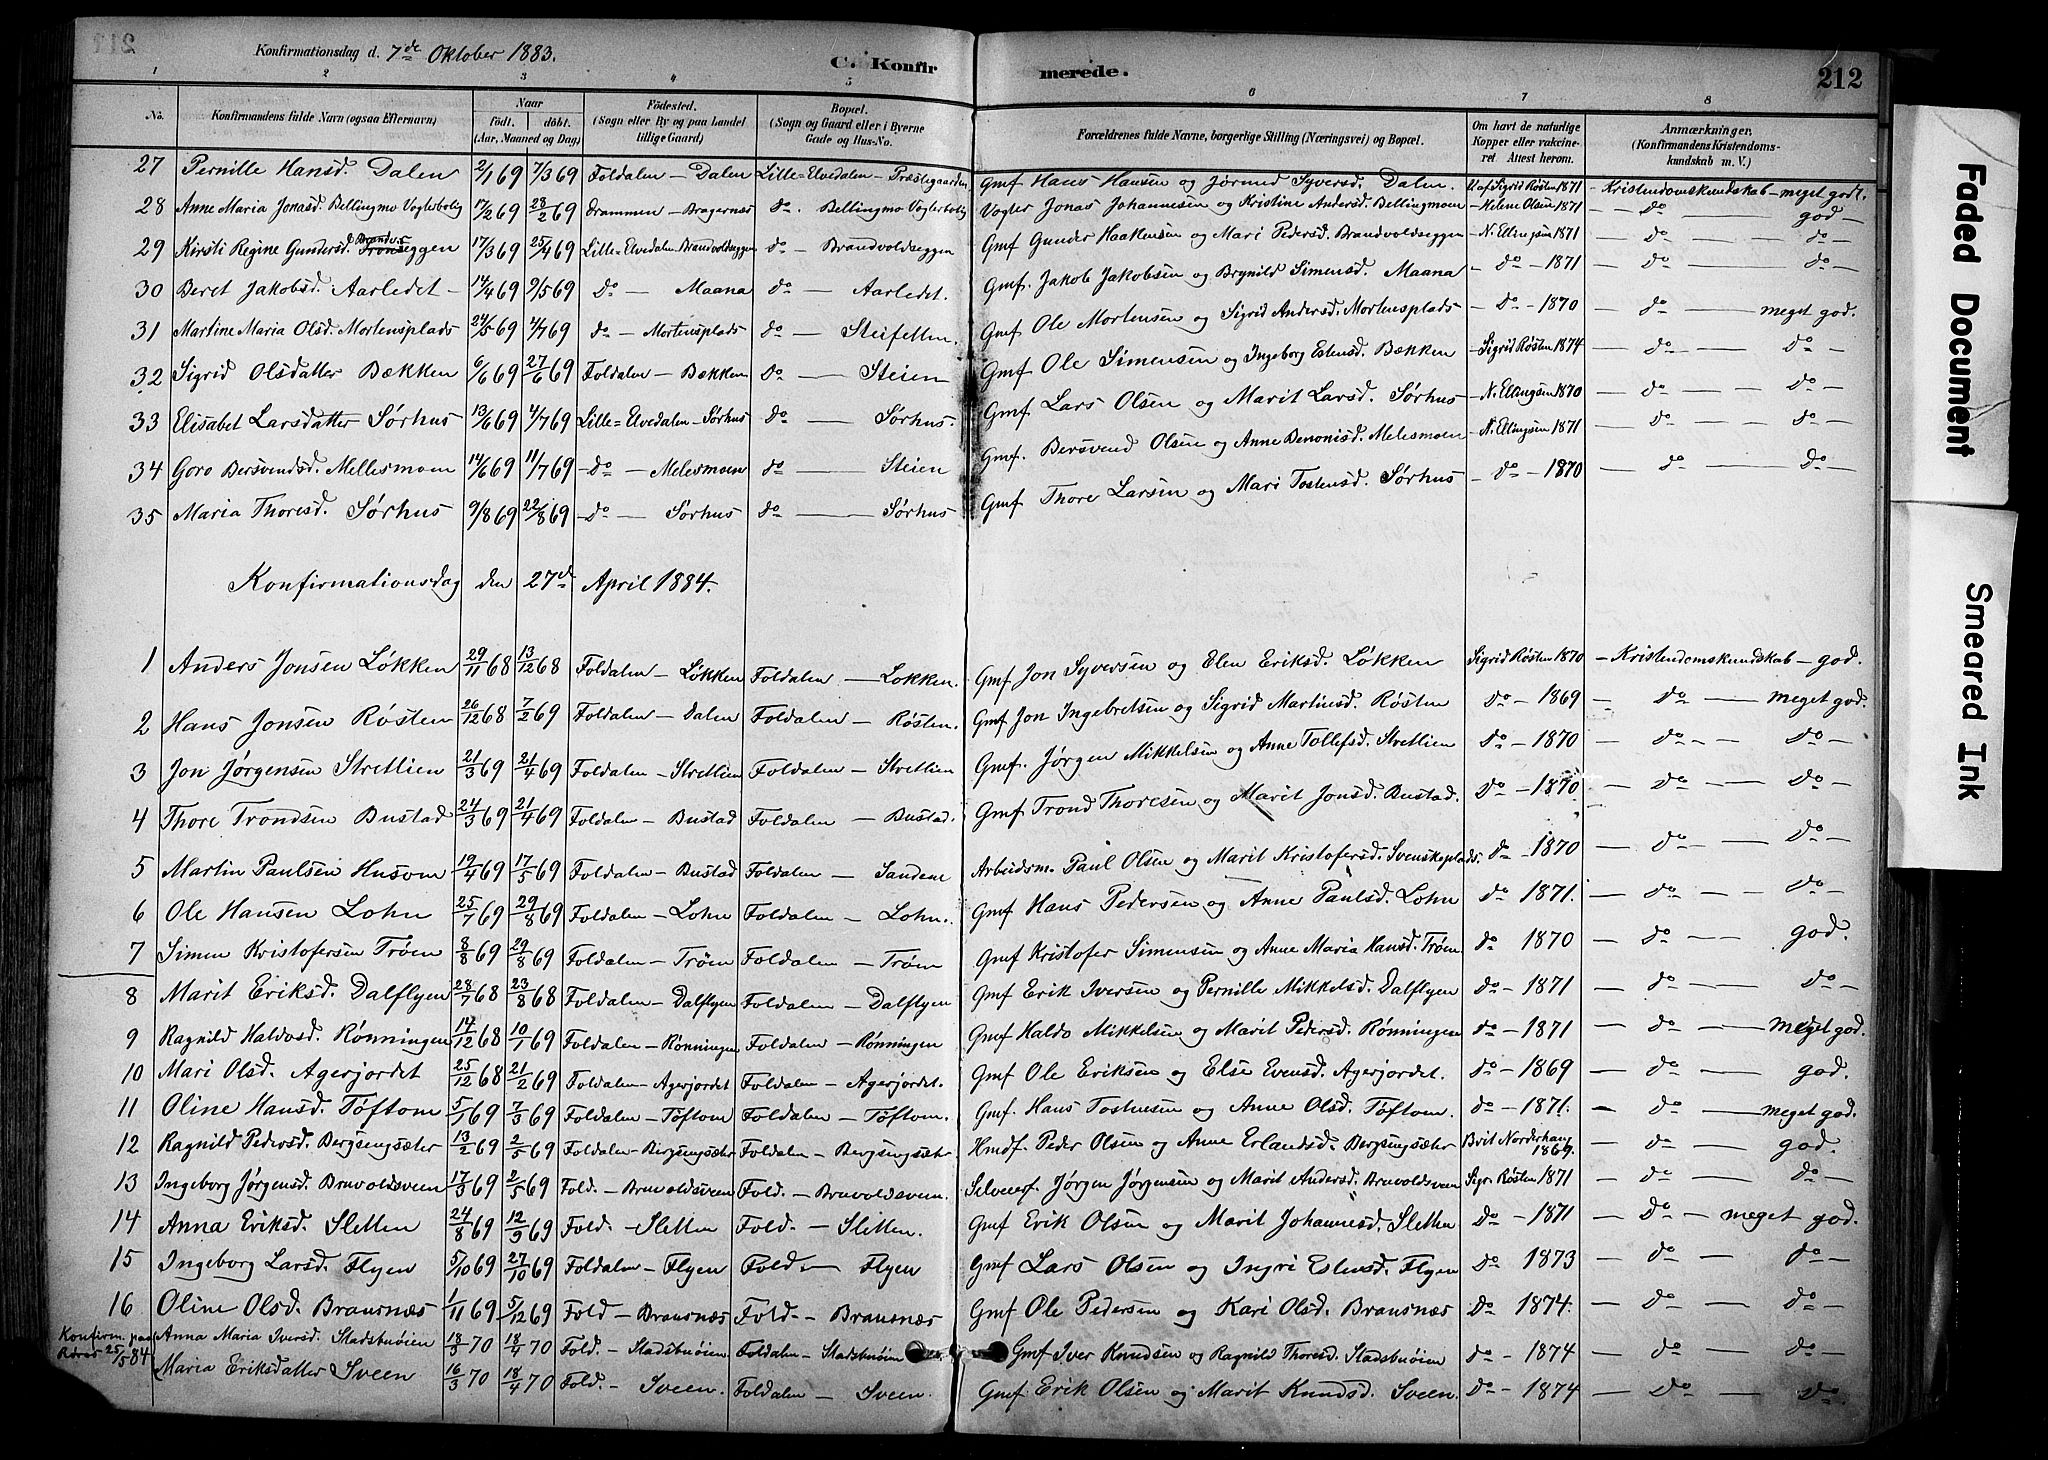 Konfirmationsdag d. 7de Oktober 1883.
C. Konfirmerede.
212
1 2 3 4 5 6 7 8
No. Konfirmandens fulde Navn (ogsaa Efternavn) Naar født. døbt. (Aar, Maaned og Dag) Fødested. (Sogn eller By og paa Landet tillige Gaard) Bopæl. (Sogn og Gaard eller i Byerne Gade og Hus-No. Forældrenes fulde Navne, borgerlige Stilling (Næringsvei) og Bopæl. Om havt de naturlige Kopper eller vakcineret. Attest herom. Anmærkninger. (Konfirmandens Kristendomskundskab m. V.)
27 Pernille Hansd. Dalen 2/1 69 7/3 69 Foldalen - Dalen Lille-Elvedalen - Præstegaarden Gmf Hans Hansen og Jørund Syversd. Dalen. V. af Sigrid Røsten 1871 - Kristendomskundskab - meget godt.
28 Anne Maria Jonasd. Bellingmo Vogterbolig 17/2 69 28/2 69 Drammen - Bragernæs do. Bellingmo Vogterbolig Vogter Jonas Johannesen og Kristine Andersd. Bellingmoen - Helene Olsen 1871 - do - god -
29 Kirsti Regine Gundersd. Brandv.seggen 17/3 69 25/4 69 Lille-Elvedalen Brandvoldseggen do - Brandvoldseggen Gmf Gunder Haakensen og Mari Pedersd. Brandvoldseggen - N. Ellingsen 1871 - do - do -
30 Beret Jakobsd. Aarledet - 14/4 69 9/5 69 do - Maana do - Aarledet. Gmf. Jakob Jakobsen og Brynild Simensd. Maana - do - 1871 - do - do -
31 Martine Maria Olsd. Mortensplads 24/5 69 4/7 69 do - Mortensplads do - Steifetten. Gmf Ole Mortensen og Sigrid Andersd. Mortensplads - do - 1870 - do - meget god.
32 Sigrid Olsdatter Bækken 6/6 69 27/6 69 Foldalen - Bækken do - Steien Gmf Ole Simensen og Ingeborg Estensd. Bækken - Sigrid Røsten 1874 - do - do -
33 Elisabet Larsdatter Sørhus 13/6 69 4/7 69 Lille-Elvedalen - Sørhus do - Sørhus. Gmf Lars Olsen og Marit Larsd. Sørhus - N. Ellingsen 1870 - do - do -
34 Goro Bersvendsd. Mellesmoen 14/6 69 11/7 69 - do - Melesmoen do - Steien Gmf. Bersvend Olsen og Anne Benonisd. Melesmoen - N. Ellingsen 1871 - do - do -
35 Maria Thoresd. Sørhus 9/8 69 22/8 69 - do - Sørhus do - Sørhus Gmf Thore Larsen og Mari Tostensd. Sørhus - do - 1870 - do - do -
Konfirmationsdag den 27de April 1884.
1 Anders Jonsen Løkken 29/11 68 13/12 68 Foldalen - Løkken Foldalen - Løkken. Gmf Jon Syversen og Elen Eriksd. Løkken Sigrid Røsten 1870 - Kristendomskundskab - god.
2 Hans Jonsen Røsten 26/12 68 7/2 69 Foldalen - Dalen Foldalen - Røsten. Gmf Jon Ingebretsen og Sigrid Martinsd. Røsten do - 1869 - do - meget god.
3 Jon Jørgensen Stretlien 21/3 69 21/4 69 Foldalen - Stretlien Foldalen - Stretlien Gmf. Jørgen Mikkelsen og Anne Tollefsd. Stretlien do - 1870 - do - do -
4 Thore Trondsen Bustad 24/3 69 21/4 69 Foldalen - Bustad Foldalen - Bustad. Gmf Trond Thoresen og Marit Jonsd. Bustad. do - 1870 - do - do -
5 Martin Paulsen Husom 19/4 69 17/5 69 Foldalen - Bustad Foldalen - Sandene Arbeidsm. Paul Olsen og Marit Kristofersd. Svenskeplads. do - 1870 - do - do -
6 Ole Hansen Lohn 25/7 69 29/8 69 Foldalen - Lohn Foldalen - Lohn. Gmf Hans Pedersen og Anne Paulsd. Lohn do - 1871. - do - do -
7 Simen Kristofersen Trøen 8/8 69 29/8 69 Foldalen - Trøen Foldalen - Trøen Gmf Kristofer Simensen og Anne Maria Hansd. Trøen do 1870 - do - god.
8 Marit Eriksd. Dalflyen 28/7 68 23/8 68 Foldalen - Dalflyen Foldalen - Dalflyen Gmf Erik Iversen og Pernille Mikkelsd. Dalflyen do - 1871 - do - do -
9 Ragnild Haldosd. Rønningen 14/12 68 10/1 69 Foldalen - Rønningen Foldalen - Rønningen Gmf Haldo Mikkelsen og Marit Pedersd. Rønningen do - 1871 - do - meget god.
10 Mari Olsd. Agerjordet 25/12 68 21/2 69 Foldalen - Agerjordet Foldalen - Agerjordet. Gmf Ole Eriksen og Else Evensd. Agerjordet. do - 1869 - do - god.
11 Oline Hansd. Tøftom 5/1 69 7/3 69 Foldalen - Tøftom Foldalen - Tøftom. Gmf. Hans Tostensen og Anne Olsd. Tøftom. do - 1871. - do - meget god.
12 Ragnild Pedersd. Bergsengsæter 13/2 69 2/5 69 Foldalen - Bergsengsæter Foldalen - Bergsengsæter. Hmdf. Peder Olsen og Anne Erlandsd. Bergsengsæter Brit Norderhaug 1869. - do - god.
13 Ingeborg Jørgensd. Bruvoldsveen 17/3 69 2/5 69 Fold. - Bruvoldsveen Fold. - Bruvoldsveen. Selveierf. Jørgen Jørgensen og Marit Andersd. Bruvoldsveen Sigr. Røsten 1871 - do - do -
14 Anna Eriksd. Sletten 24/8 69 12/9 69 Fold. - Sletten Fold. - Sletten. Gmf Erik Olsen og Marit Johannesd. Sletten do - 1871 - do - meget god.
15 Ingeborg Larsd. Flyen 5/10 69 27/10 69 Foldalen - Flyen Fold. - Flyen Gmf Lars Olsen og Ingri Estensd. Flyen do 1873 - do - do -
16 Oline Olsd. Bransnæs 1/11 69 5/12 69 Fold - Bransnæs Fold. - Bransnæs Gmf Ole Pedersen og Kari Olsd. Bransnæs do 1874. - do - do -
Konfirm. paa Røros 25/5 84 Anna Maria Iversd. Stadsbuøien 18/3 70 18/4 70 Fold. - Stadsbuøien Foldalen - Stadsbuøien Gmf Iver Knudsen og Ragnild Thoresd. Stadsbuøien do - 1874 - do - do -
Maria Eriksdatter Sveen 16/3 70 18/4 70 Fold. - Sveen. Foldalen - Sveen. Gmf. Erik Olsen og Marit Knudsd. Sveen. do - 1874 - do - do -
Faded Document
Smeared Ink